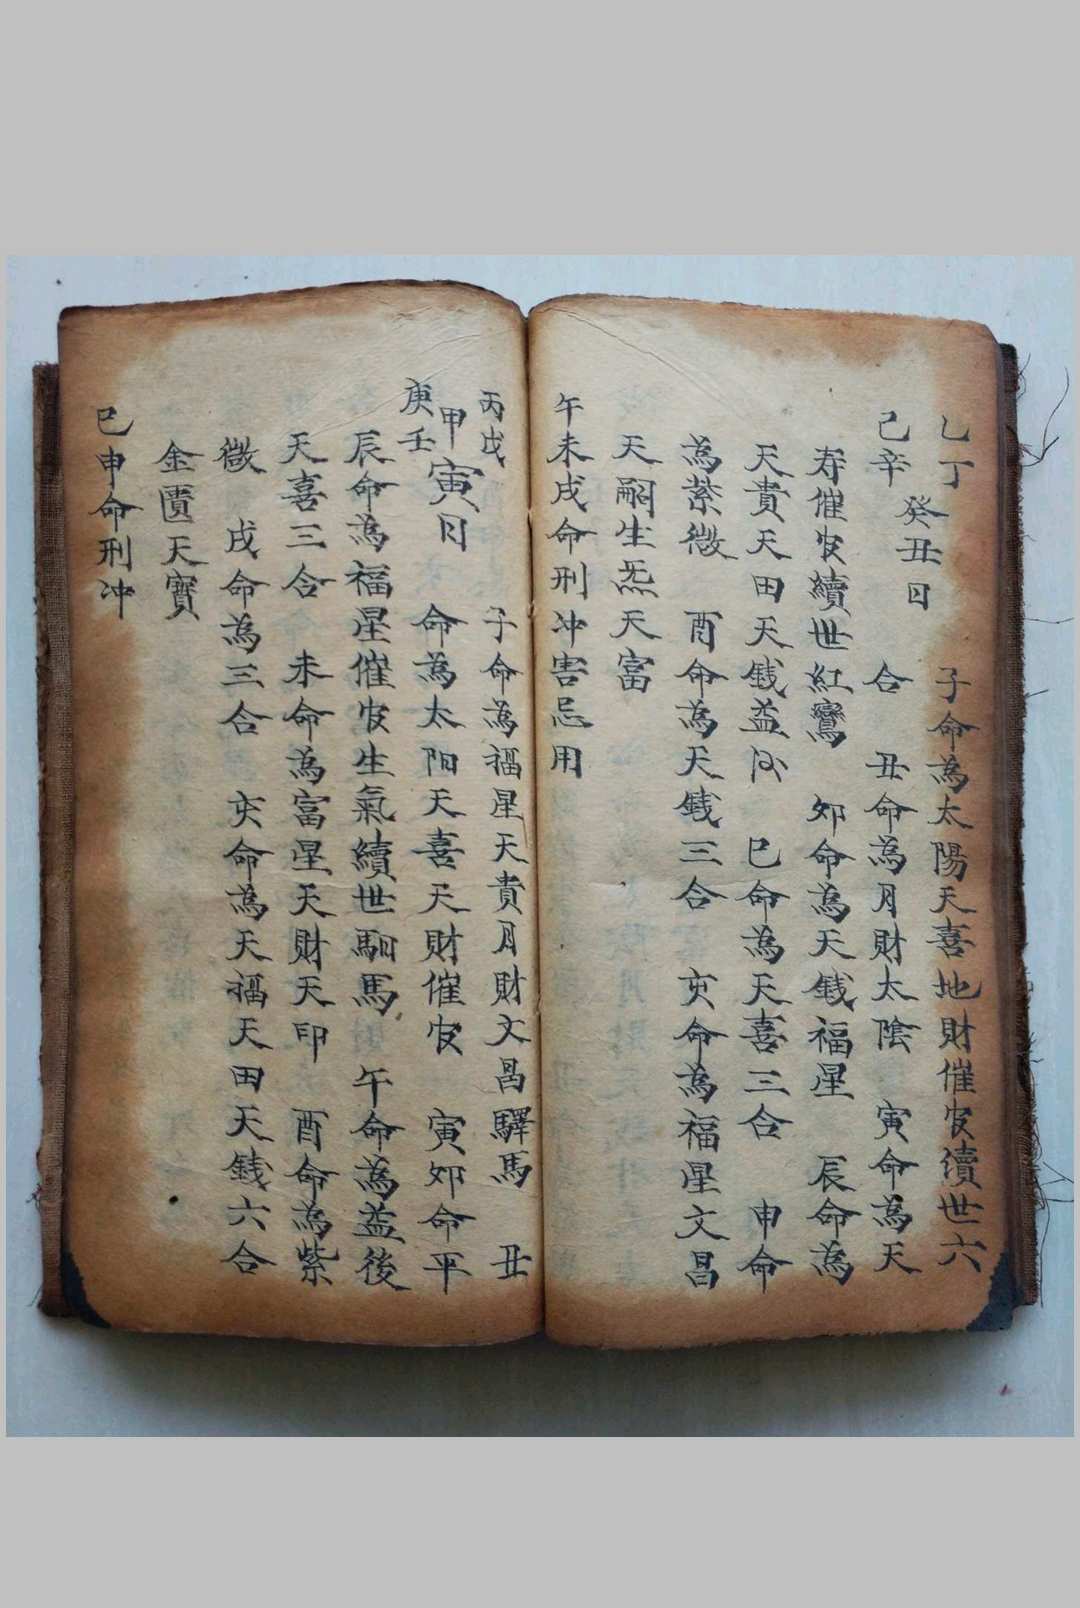 乙丁 子命為太陽天喜地財催官續世六
己辛 癸丑日 合 丑命為月財太陰 寅命為天
寿催官續世紅鸞 卯命為天錢福星 辰命為
天貴天田天錢益后 巳命為天喜三合 申命
為紫微 酉命為天錢三合 亥命為福星文昌
天嗣生炁天富
午未戌命刑冲害忌用
丙戊 子命為福星天貴月財文昌驛馬 丑
庚壬 甲寅日 命為太阳天喜天財催官 寅卯命平
辰命為福星催官生氣續世馹馬 午命為益後
天喜三合 未命為富星天財天印 酉命為紫
微 戌命為三合 亥命為天福天田天錢六合
金匱天寶
巳申命刑冲